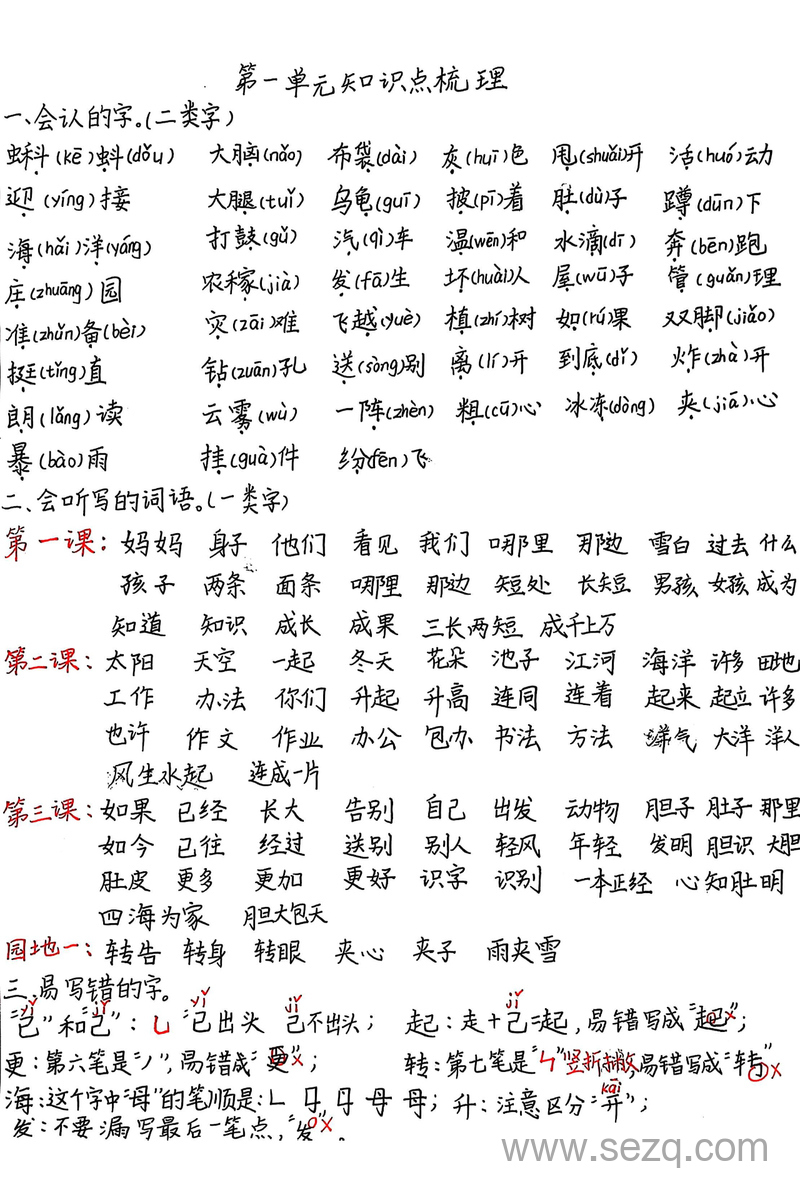 第一单元知识点梳理
一、会认的字。(二类字)
蝌(kē)蚪(dǒu) 大脑(nǎo) 布袋(dài) 灰(huī)色 甩(shuǎi)开 活(huó)动
迎(yíng)接 大腿(tuǐ) 乌龟(guī) 披(pī)着 肚(dù)子 蹲(dūn)下
海(hǎi)洋(yáng) 打鼓(gǔ) 汽(qì)车 温(wēn)和 水滴(dī) 奔(bēn)跑
庄(zhuāng)园 农稼(jià) 发(fā)生 坏(huài)人 屋(wū)子 管(guǎn)理
准(zhǔn)备(bèi) 灾(zāi)难 飞越(yuè) 植(zhí)树 如(rú)果 双脚(jiǎo)
挺(tǐng)直 钻(zuān)孔 送(sòng)别 离(lí)开 到底(dǐ) 炸(zhà)开
朗(lǎng)读 云雾(wù) 一阵(zhèn) 粗(cū)心 冰冻(dòng) 夹(jiā)心
暴(bào)雨 挂(guà)件 纷(fēn)飞
二、会听写的词语。(一类字)
第一课: 妈妈 身子 他们 看见 我们 哪里 那边 雪白 过去 什么
孩子 两条 面条 哪里 那边 短处 长短 男孩 女孩 成为
知道 知识 成长 成果 三长两短 成千上万
第二课: 太阳 天空 一起 冬天 花朵 池子 江河 海洋 许多 田地
工作 办法 你们 升起 升高 连同 连着 起来 起立 许多
也许 作文 作业 办公 包办 书法 方法 气 大洋 洋人
风生水起 连成一片
第三课: 如果 已经 长大 告别 自己 出发 动物 胆子 肚子 那里
如今 已往 经过 送别 别人 轻风 年轻 发明 胆识 大胆
肚皮 更多 更加 更好 识字 识别 一本正经 心知肚明
四海为家 胆大包天
园地一: 转告 转身 转眼 夹心 夹子 雨夹雪
三、易写错的字。
yǐ jǐ yǐ jǐ jǐ
"已"和"己": 乚 "已出头 己不出头; 起:走+己=起,易错写成"起×";
更:第六笔是"丿",易错成"更×"; 转:第七笔是"ㄣ竖折撇,易错写成"转×
kāi
海:这个字中"母"的笔顺是:乚 母; 升:注意区分"开";
发:不要漏写最后一笔点,"发×"。
www.sezq.com